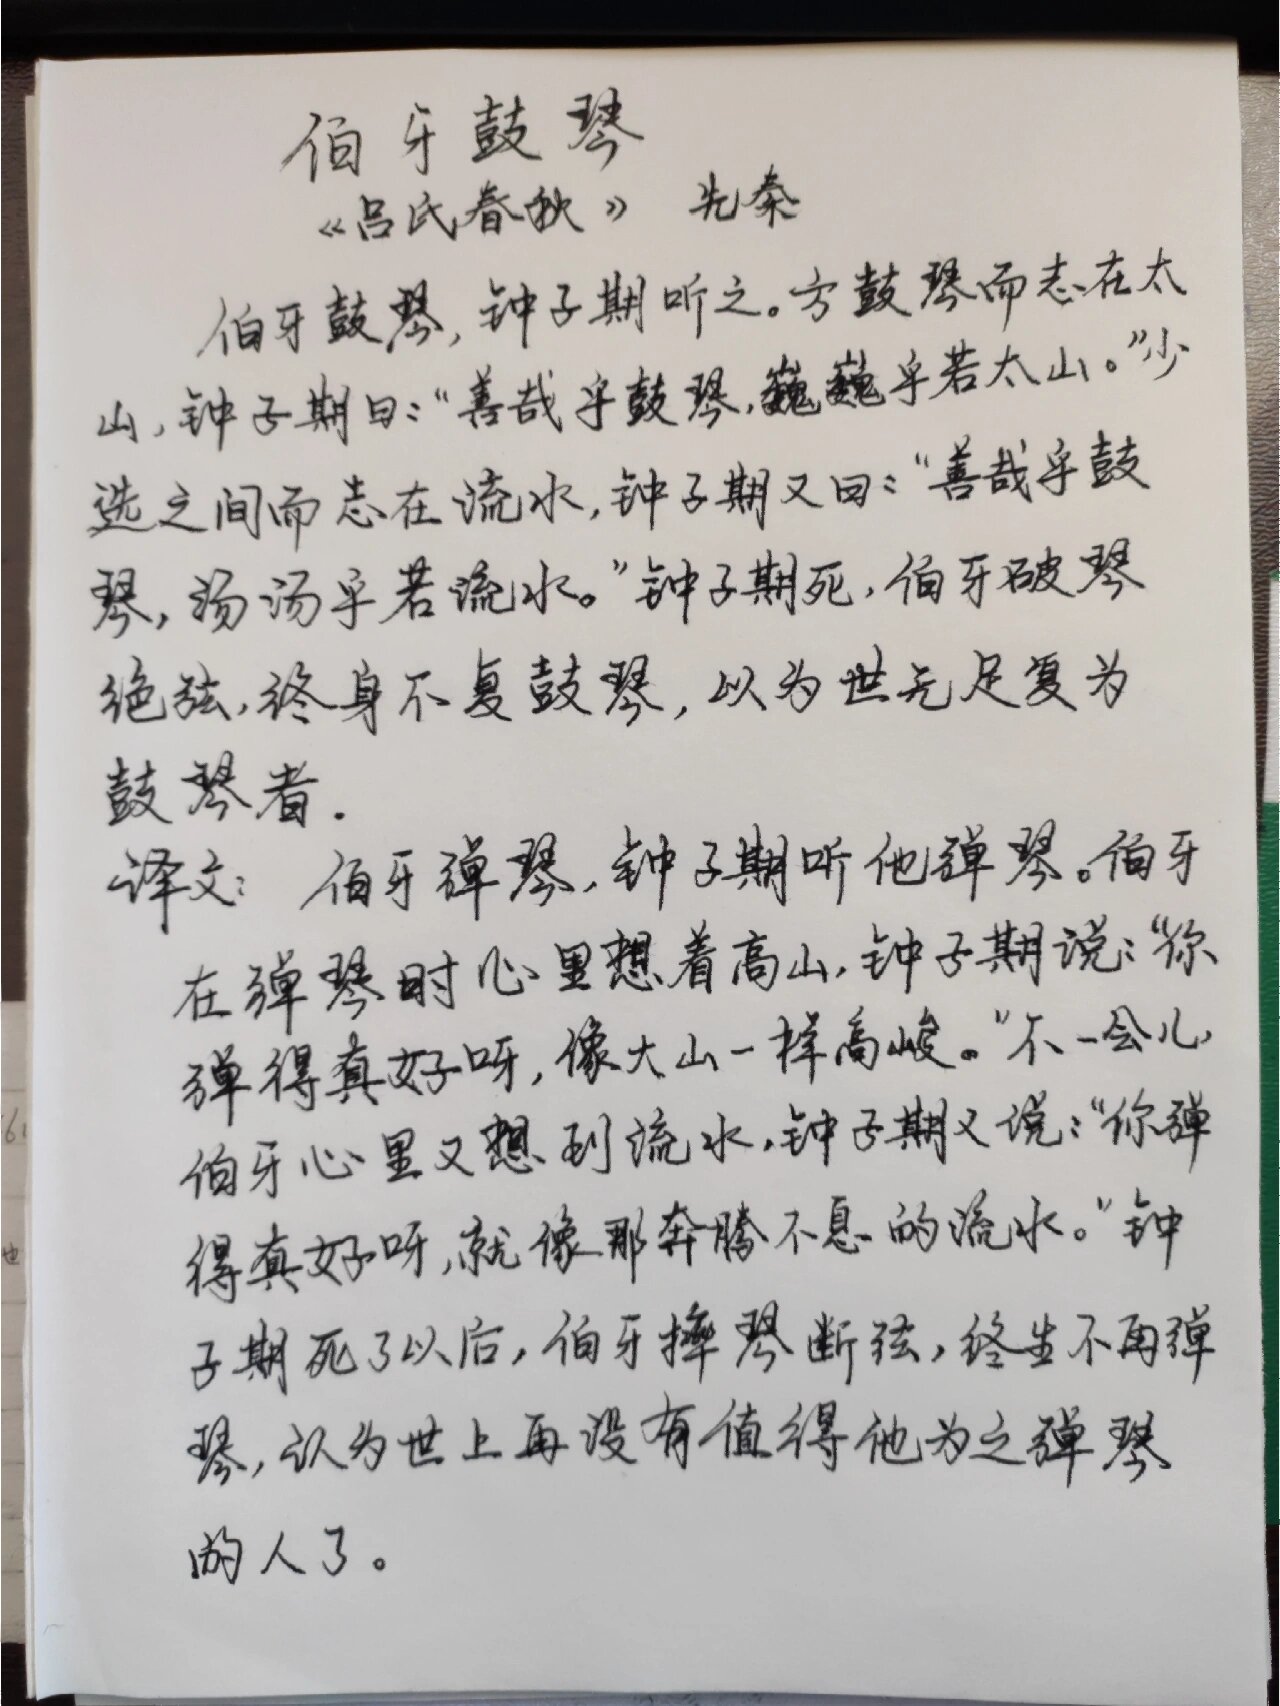 伯牙鼓琴
《吕氏春秋》 先秦
伯牙鼓琴,钟子期听之。方鼓琴而志在太
山,钟子期曰:“善哉乎鼓琴,巍巍乎若太山。”少
选之间而志在流水,钟子期又曰:“善哉乎鼓
琴,汤汤乎若流水。”钟子期死,伯牙破琴
绝弦,终身不复鼓琴,以为世无足复为
鼓琴者.
译文: 伯牙弹琴,钟子期听他弹琴。伯牙
在弹琴时心里想着高山,钟子期说:“你
弹得真好呀,像大山一样高峻。”不一会儿,
伯牙心里又想到流水,钟子期又说:“你弹
得真好呀,就像那奔腾不息的流水。”钟
子期死了以后,伯牙摔琴断弦,终生不再弹
琴,认为世上再没有值得他为之弹琴
的人了。